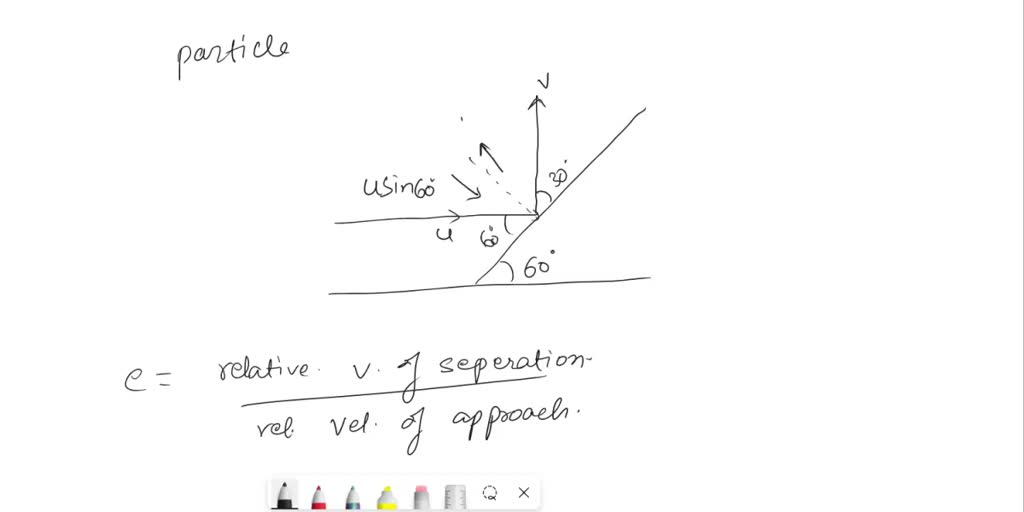 particle
v
30°
usin60°
u
60°
60°
e = relative. v. of seperation.
rel. vel. of approach.